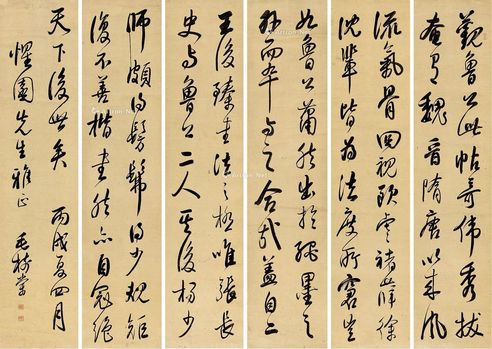 觀魯公此帖奇偉秀拔
奄有魏晉隋唐以來風
流氣骨回視歐虞褚薛徐
沈輩皆為法度所窘豈
如魯公蕭然出於繩墨之
外而卒與之合哉蓋自二
王後臻書法之極唯張長
史與魯公二人其後楊少
師頗得髣髴得少規矩
復不善楷書然亦自冠絕
天下後世矣 丙戌夏四月
惺園先生雅正 毛樹棠